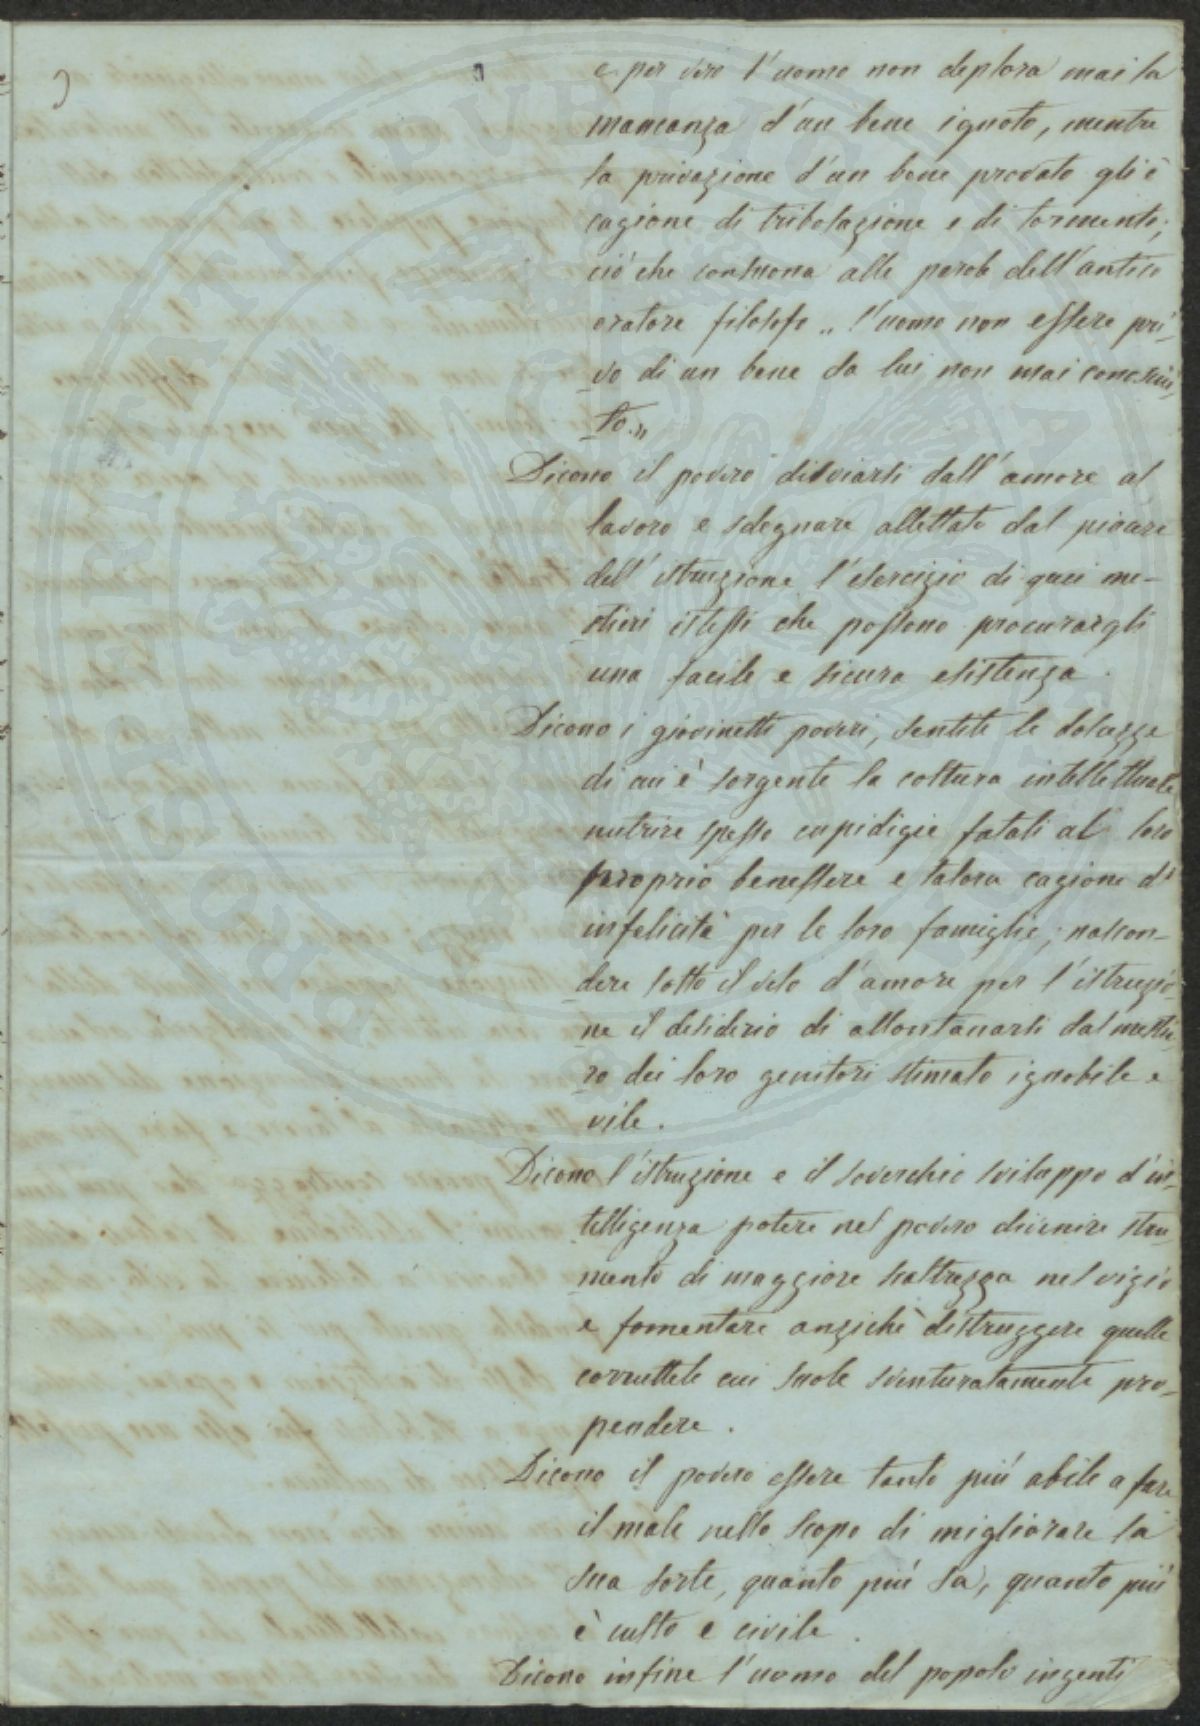 e per vero l'uomo non deplora mai la
mancanza d'un bene ignoto, mentre
la privazione d'un bene provato gli è
cagione di tribolazione e di tormento;
ciò che consuona alle parole dell'antico
oratore filosofo „ l'uomo non essere pri-
vo di un bene da lui non mai conosciu-
to.„
Dicono il povero disviarsi dall'amore al
lavoro e sdegnare allettato dal piacere
dell'istruzione l'esercizio di quei me-
stieri istessi che possono procurargli
una facile e sicura esistenza.
Dicono i giovinetti poveri, sentite le dolcezze
di cui è sorgente la coltura intellettuale
nutrire spesso cupidigie fatali al loro
proprio benessere e talora cagione di
infelicità per le loro famiglie; nascon-
dere sotto il velo d'amore per l'istruzio-
ne il desiderio di allontanarsi dal mestie-
ro dei loro genitori stimato ignobile e
vile.
Dicono l'istruzione e il soverchio sviluppo d'in-
telligenza potere nel povero divenire stru-
mento di maggiore scaltrezza nel vizio
e fomentare anzichè distruggere quelle
corruttele cui suole sventuratamente pro-
pendere.
Dicono il povero essere tanto più abile a fare
il male nello scopo di migliorare la
sua sorte, quanto più sa, quanto più
è culto e civile.
Dicono infine l'uomo del popolo ingenti
PROSPERITATI PVBLICAE